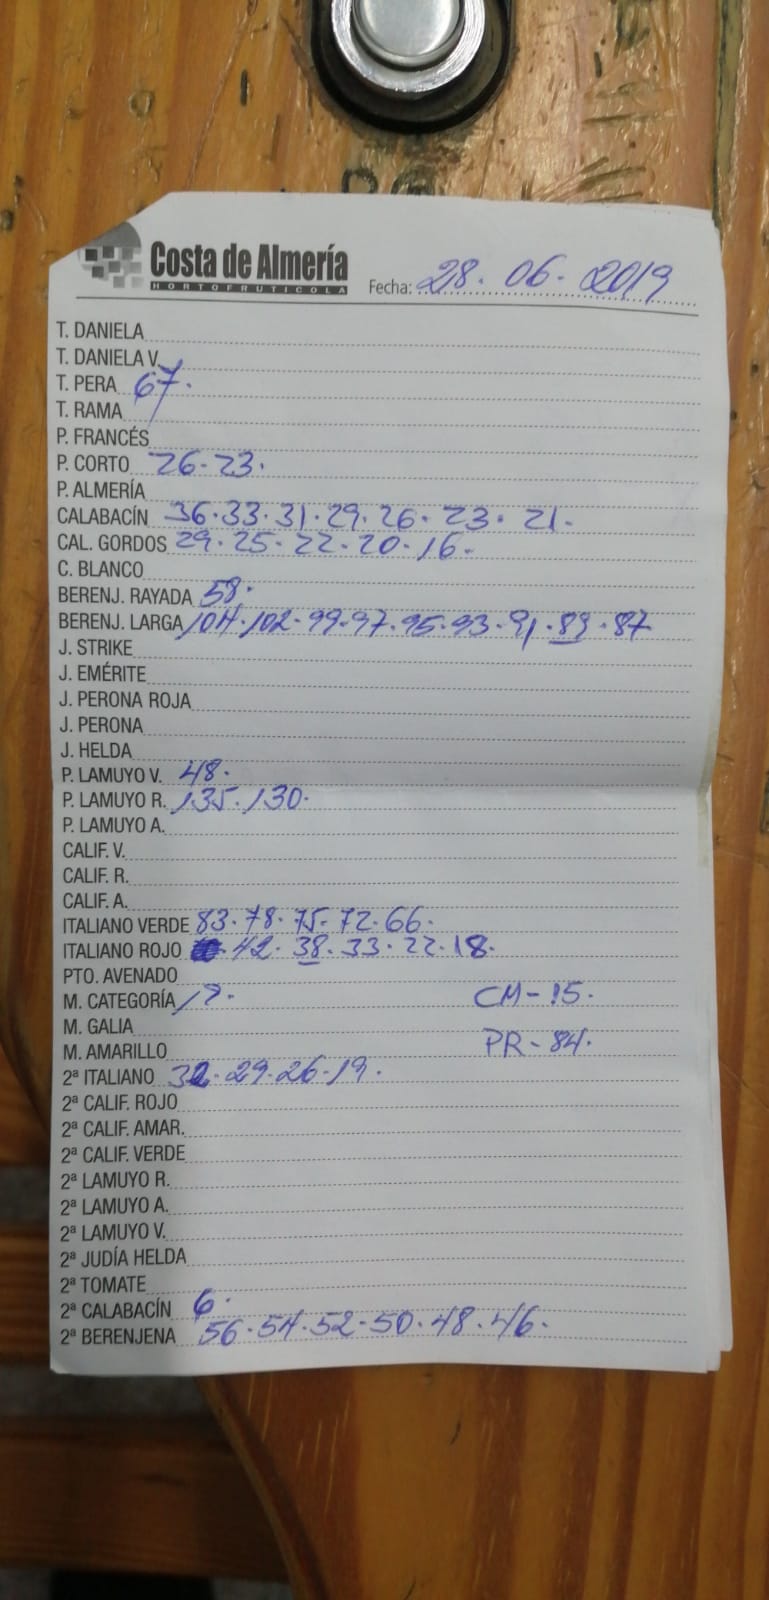 Costa de Almería
HORTOFRUTICOLA
Fecha: 28. 06. 2019
T. DANIELA
T. DANIELA V.
T. PERA 67.
T. RAMA
P. FRANCÉS
P. CORTO 26.23.
P. ALMERÍA
CALABACÍN 36.33.31.29.26.23.21.
CAL. GORDOS 29.25.22.20.16.
C. BLANCO
BERENJ. RAYADA 58.
BERENJ. LARGA 104.102.99.97.95.93.91.89.87
J. STRIKE
J. EMÉRITE
J. PERONA ROJA
J. PERONA
J. HELDA
P. LAMUYO V. 48.
P. LAMUYO R. 135.130.
P. LAMUYO A.
CALIF. V.
CALIF. R.
CALIF. A.
ITALIANO VERDE 83.78.75.72.66.
ITALIANO ROJO 42.38.33.22.18.
PTO. AVENADO
M. CATEGORÍA CM-15.
M. GALIA
M. AMARILLO PR-84.
2ª ITALIANO 32.29.26.19.
2ª CALIF. ROJO
2ª CALIF. AMAR.
2ª CALIF. VERDE
2ª LAMUYO R.
2ª LAMUYO A.
2ª LAMUYO V.
2ª JUDÍA HELDA
2ª TOMATE
2ª CALABACÍN 6.
2ª BERENJENA 56.54.52.50.48.46.